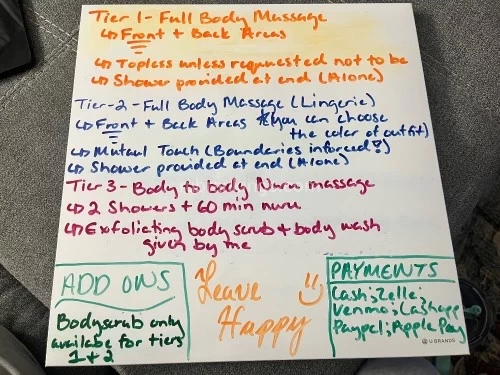 Tier 1 - Full Body Massage
↳ Front + Back Areas
↳ Topless unless requested not to be
↳ Shower provided at end (Alone)
Tier-2 - Full Body Massage (Lingerie)
↳ Front + Back Areas *(you can choose
the color of outfit)
↳ Mutaul Touch (Boundaries inforced?)
↳ Shower provided at end (Alone)
Tier 3 - Body to body Nuru massage
↳ 2 Showers + 60 min nuru
↳ Exfoliating body scrub + body wash
given by me
ADD ONS
Bodyscrub only
availabe for tiers
1 + 2
Leave
Happy
PAYMENTS
Cash; Zelle;
Venmo; Cashapp
Paypal; Apple Pay
U BRANDS